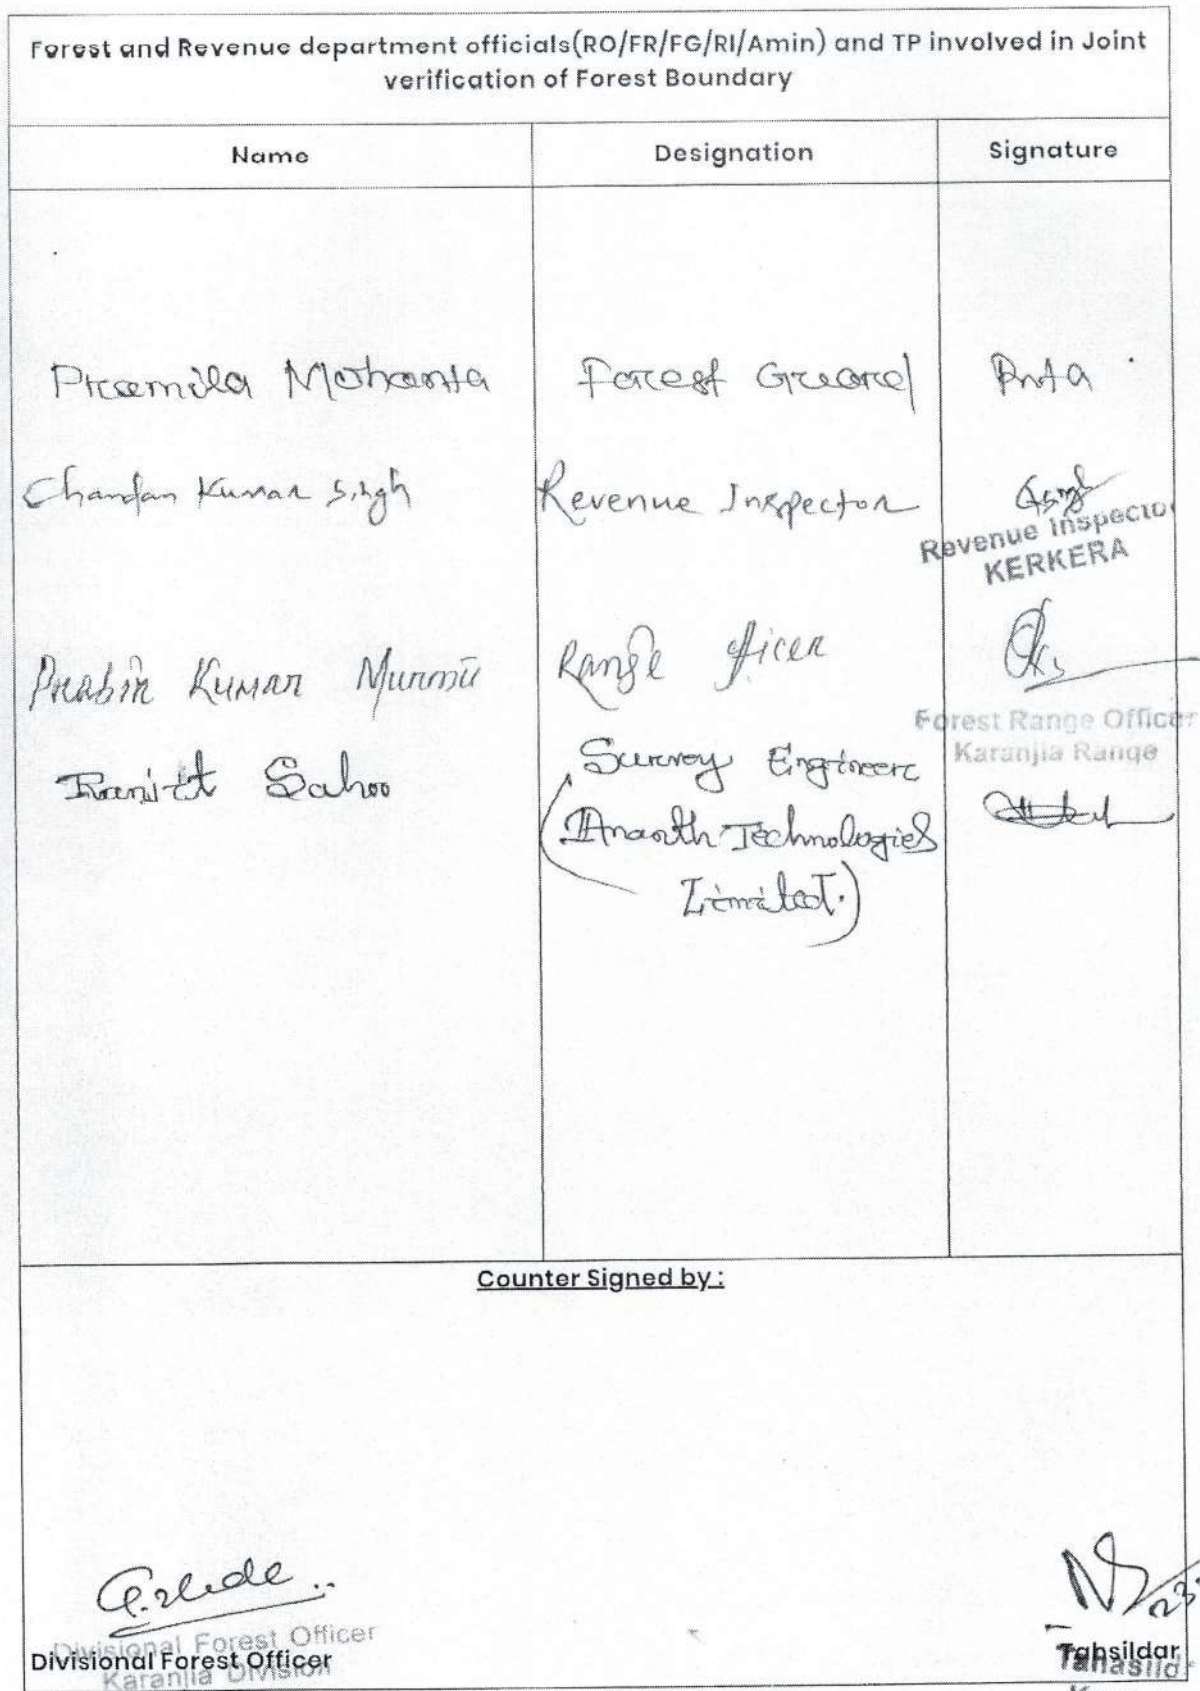 Forest and Revenue department officials(RO/FR/FG/RI/Amin) and TP involved in Joint
verification of Forest Boundary
Name Designation Signature
Pramila Mohanta Forest Guard
Chandan Kumar Singh Revenue Inspector
Revenue Inspecto
KERKERA
Prabir Kumar Murmu Range fficer
Forest Range Officer
Karanjia Range
Ranjit Sahoo Survey Engineer
(Ananth Technologies
Limited.)
Counter Signed by :
23.
Divisional Forest Officer
Karanjia Division
Divisional Forest Officer
Tahsildar
Tahasild